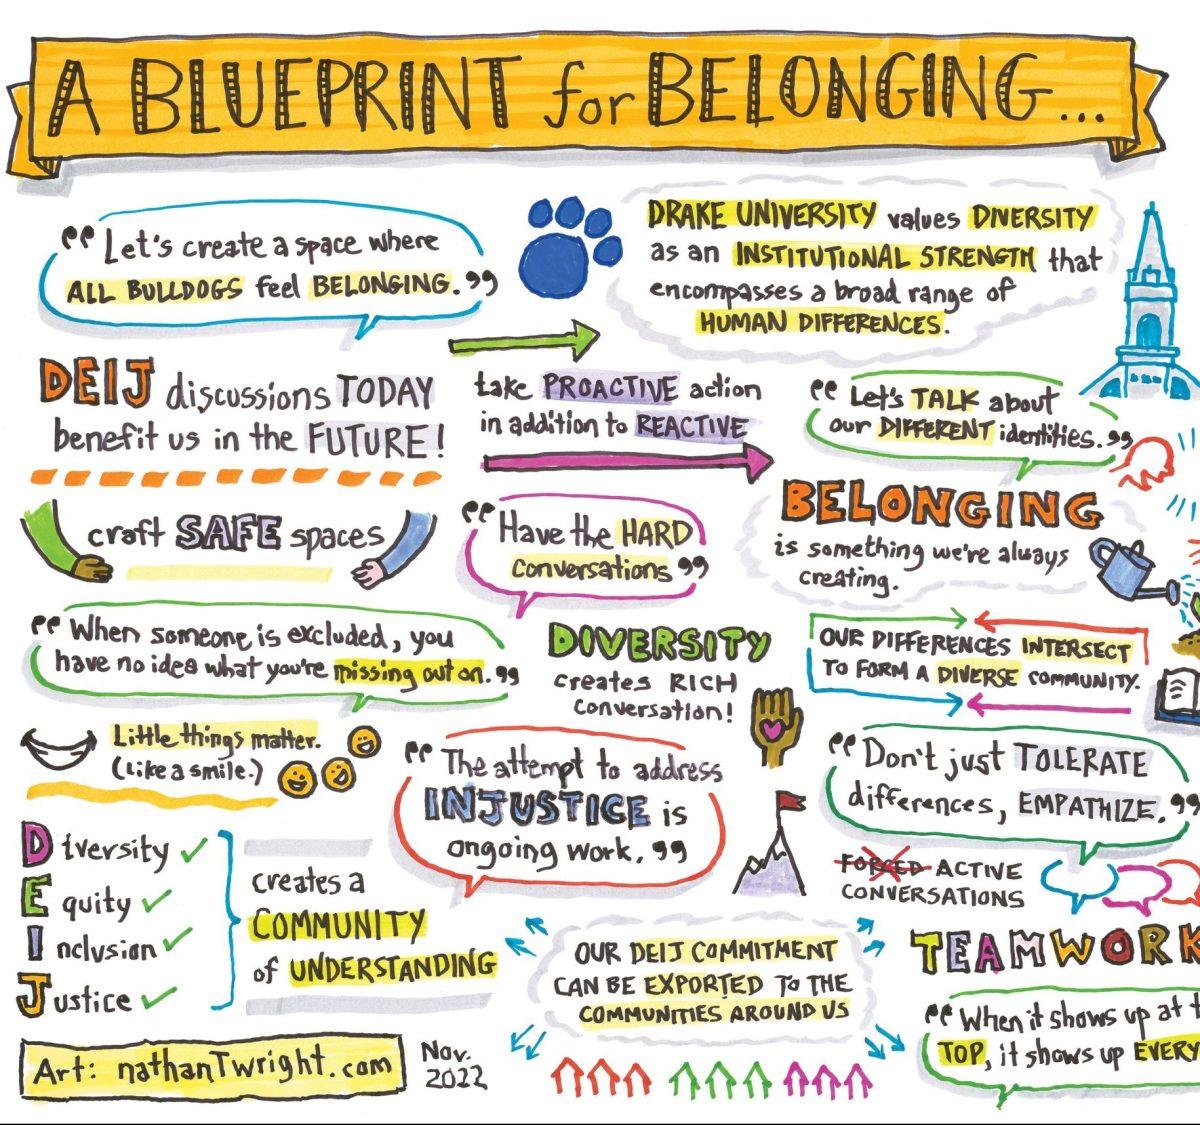 A BLUEPRINT for BELONGING...
"Let's create a space where
ALL BULLDOGS feel BELONGING."
DRAKE UNIVERSITY values DIVERSITY
as an INSTITUTIONAL STRENGTH that
encompasses a broad range of
HUMAN DIFFERENCES.
DEIJ discussions TODAY
benefit us in the FUTURE!
take PROACTIVE action
in addition to REACTIVE
"Let's TALK about
our DIFFERENT identities."
craft SAFE spaces
"Have the HARD
conversations"
BELONGING
is something we're always
creating.
"When someone is excluded, you
have no idea what you're missing out on."
DIVERSITY
creates RICH
conversation!
OUR DIFFERENCES INTERSECT
TO FORM A DIVERSE COMMUNITY.
Little things matter.
(Like a smile.)
"The attempt to address
INJUSTICE is
ongoing work."
"Don't just TOLERATE
differences, EMPATHIZE."
FORCED ACTIVE
CONVERSATIONS
Diversity
Equity
Inclusion
Justice
creates a
COMMUNITY
of UNDERSTANDING
OUR DEIJ COMMITMENT
CAN BE EXPORTED TO THE
COMMUNITIES AROUND US
TEAMWORK
"When it shows up at t
TOP, it shows up EVERY
Art: nathanTwright.com
Nov.
2022